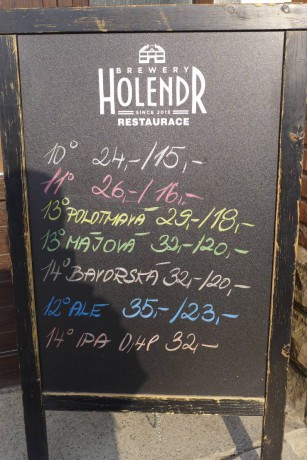 BREWERY
HOLENDR
SINCE 2015
RESTAURACE
10° 24,-/15,-
11° 26,-/16,-
13° POLOTMAVÁ 29,-/18,-
13° MÁJOVÁ 32,-/20,-
14° BAVORSKÁ 32,-/20,-
12° ALE 35,-/23,-
14° IPA 0,4l 32,-